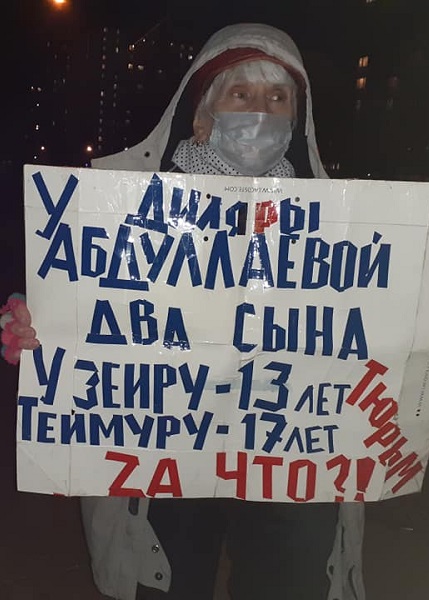 WWW.LACOSTE.COM
У ДИЛЯРЫ
АБДУЛЛАЕВОЙ
ДВА СЫНА
УЗЕИРУ-13 ЛЕТ
ТЕЙМУРУ-17 ЛЕТ
ТЮРЬМ
ZА ЧТО?!